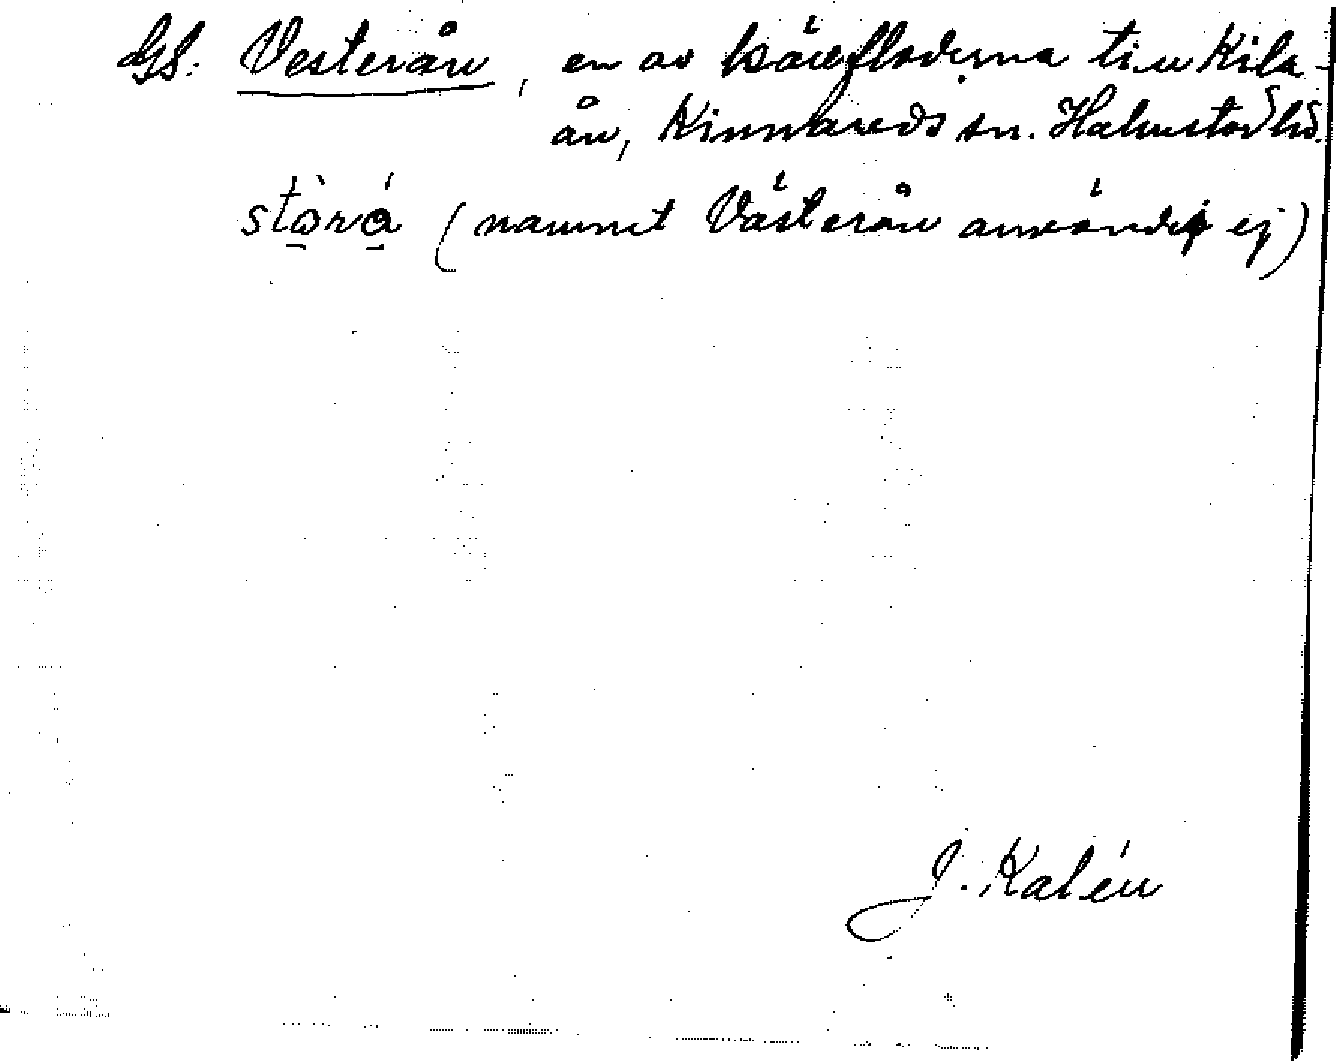 GS. Vesterån, en av källfloderna till Kila-
ån, Kinnareds sn. Halmstads hd.
stòrá (namnet Västerån användes ej)
J. Kalén